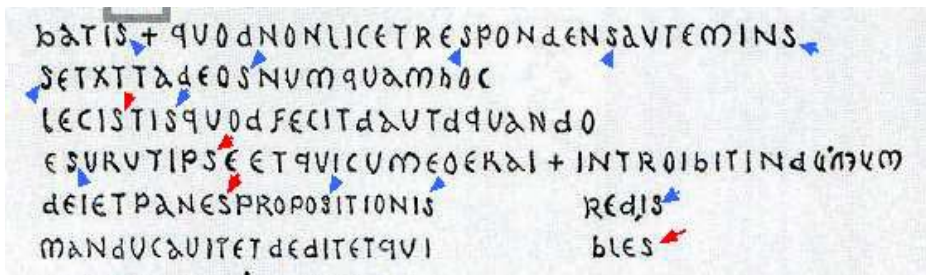 batis + quod non licet respondens autem ins
set xtt ad eos numquam hoc
lecistis quod fecit dautd quando
esurutipse et qui cum eo erai + introibit in
dei et panes propositionis redis
manducauit et dedit et qui bles